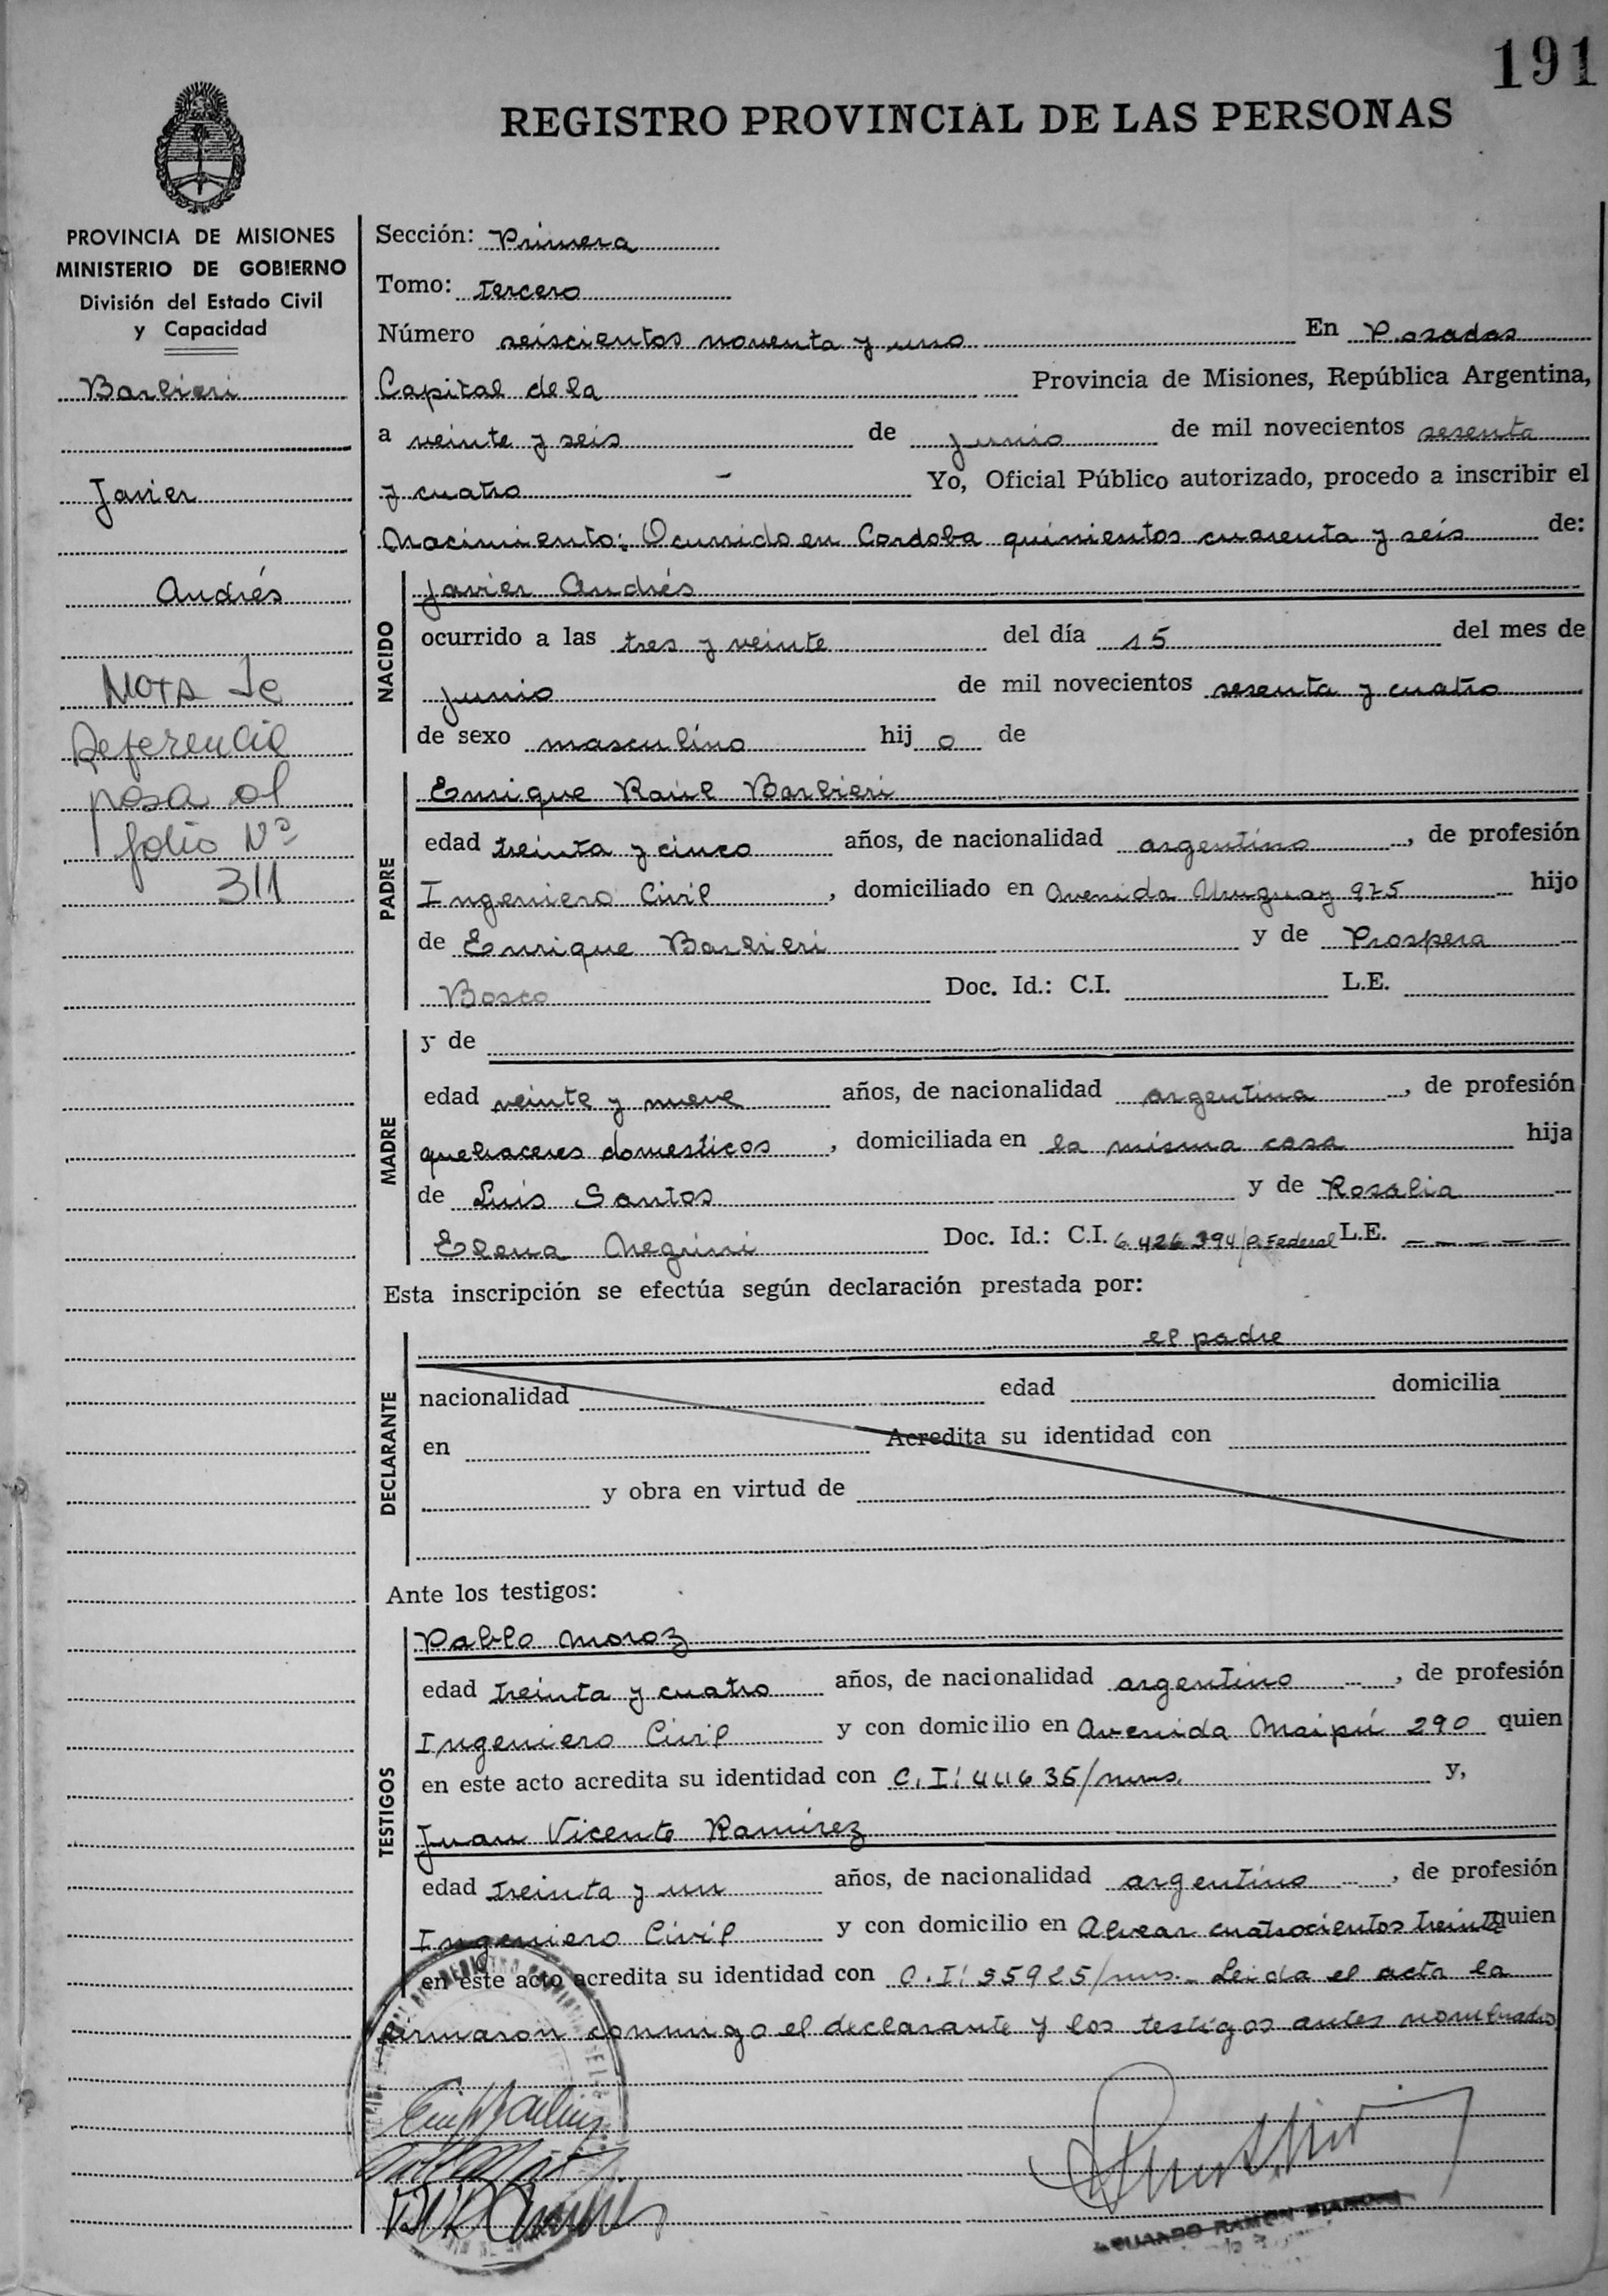 191
REGISTRO PROVINCIAL DE LAS PERSONAS
PROVINCIA DE MISIONES
MINISTERIO DE GOBIERNO
División del Estado Civil
y Capacidad
Barbieri
Javier
Andrés
Nota de
Referencia
pasa al
folio Nº
311
Sección: Primera
Tomo: Tercero
Número seiscientos noventa y uno En Posadas
Capital de la Provincia de Misiones, República Argentina,
a veinte y seis de junio de mil novecientos sesenta
y cuatro Yo, Oficial Público autorizado, procedo a inscribir el
Nacimiento: Ocurrido en Cordoba quinientos cuarenta y seis de:
NACIDO
Javier Andrés
ocurrido a las tres y veinte del día 15 del mes de
junio de mil novecientos sesenta y cuatro
de sexo masculino hij o de
PADRE
Enrique Raúl Barbieri
edad treinta y cinco años, de nacionalidad argentino, de profesión
Ingeniero Civil, domiciliado en Avenida Uruguay 975 hijo
de Enrique Barbieri y de Prospera
Bosco Doc. Id.: C.I. L.E.
MADRE
y de
edad veinte y nueve años, de nacionalidad argentina, de profesión
quehaceres domesticos, domiciliada en la misma casa hija
de Luis Santos y de Rosalia
Elena Negrini Doc. Id.: C.I. 6.426.394/P. Federal L.E. – – – – –
Esta inscripción se efectúa según declaración prestada por:
DECLARANTE
el padre
nacionalidad edad domicilia
en Acredita su identidad con
y obra en virtud de
Ante los testigos:
TESTIGOS
Pablo Moroz
edad treinta y cuatro años, de nacionalidad argentino, de profesión
Ingeniero Civil y con domicilio en Avenida Maipú 290 quien
en este acto acredita su identidad con C.I: 44635/mns. y,
Juan Vicente Ramírez
edad treinta y un años, de nacionalidad argentino, de profesión
Ingeniero Civil y con domicilio en Alvear cuatrocientos treinta quien
en este acto acredita su identidad con C.I: 55925/mns. - Leida el acta la
firmaron conmigo el declarante y los testigos antes nombrados
RAMON